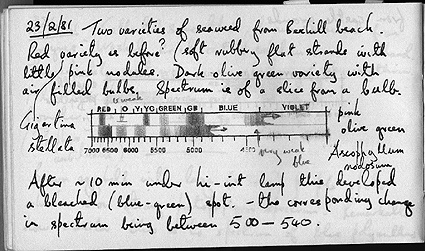 23/2/81 Two varieties of seaweed from Bexhill beach.
Red variety as before? (soft rubbery flat strands with
little pink nodules. Dark olive green variety with
air filled bulbs. Spectrum is of a slice from a bulb.
is weak
RED O Y YG GREEN GB BLUE VIOLET
Gigartina stellata
pink
olive green
7000 6500 6000 5500 5000 4500
very weak blue
Ascophyllum nodosum
After ~10 min under hi-int lamp this developed
a bleached (blue-green) spot. - the corresponding change
in spectrum being between 500-540.